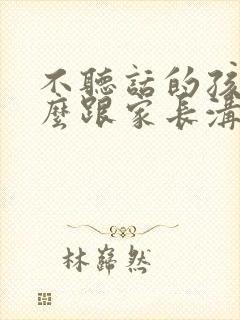 不聽話的孩
麼跟家長溝
林巋然